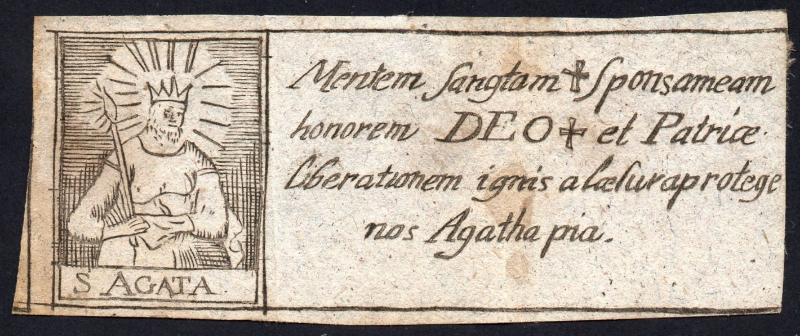 Mentem Sanctam ✝ Sponsameam
honorem DEO ✝ et Patriæ.
liberationem ignis alæsuraprotege
nos Agatha pia.
S AGATA